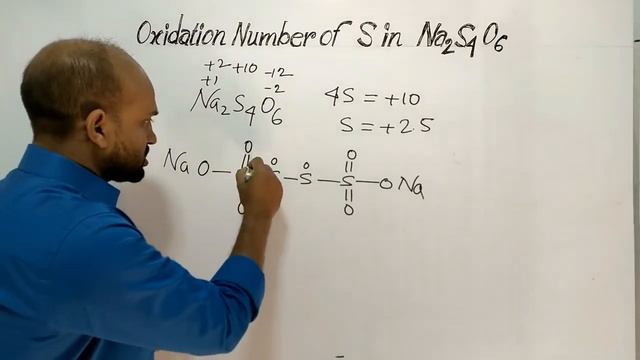 Oxidation Number of S in Na2S4O6
+2 +10 -12
+1 -2
Na2S4O6 4S = +10
S = +2.5
O O O O
Na O S S O Na
O O